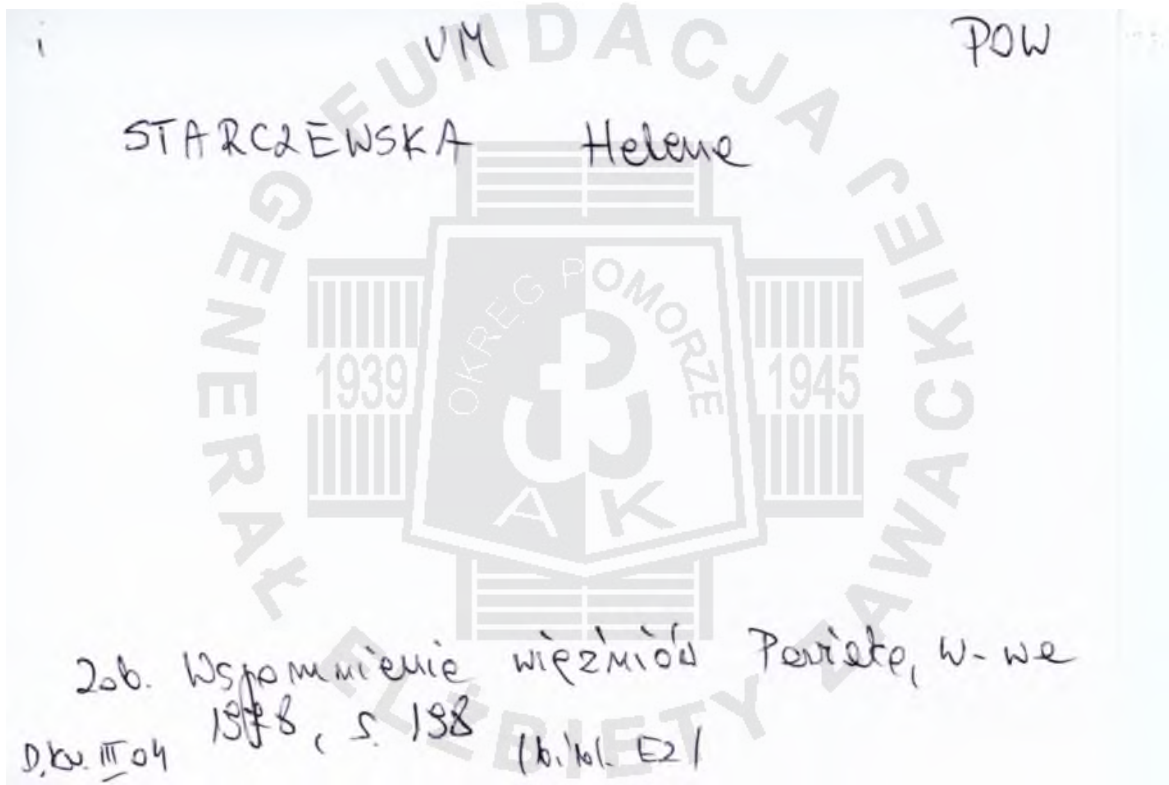 i VM POW
STARCZEWSKA Helena
Zob. Wspomnienia więźniów Pawiaka, W-wa
1978, s. 198
D.Kw. III 04 (b.bl. EZ)
FUNDACJA
GENERAŁ ELŻBIETY ZAWACKIEJ
OKRĘG POMORZE
1939 1945
AK